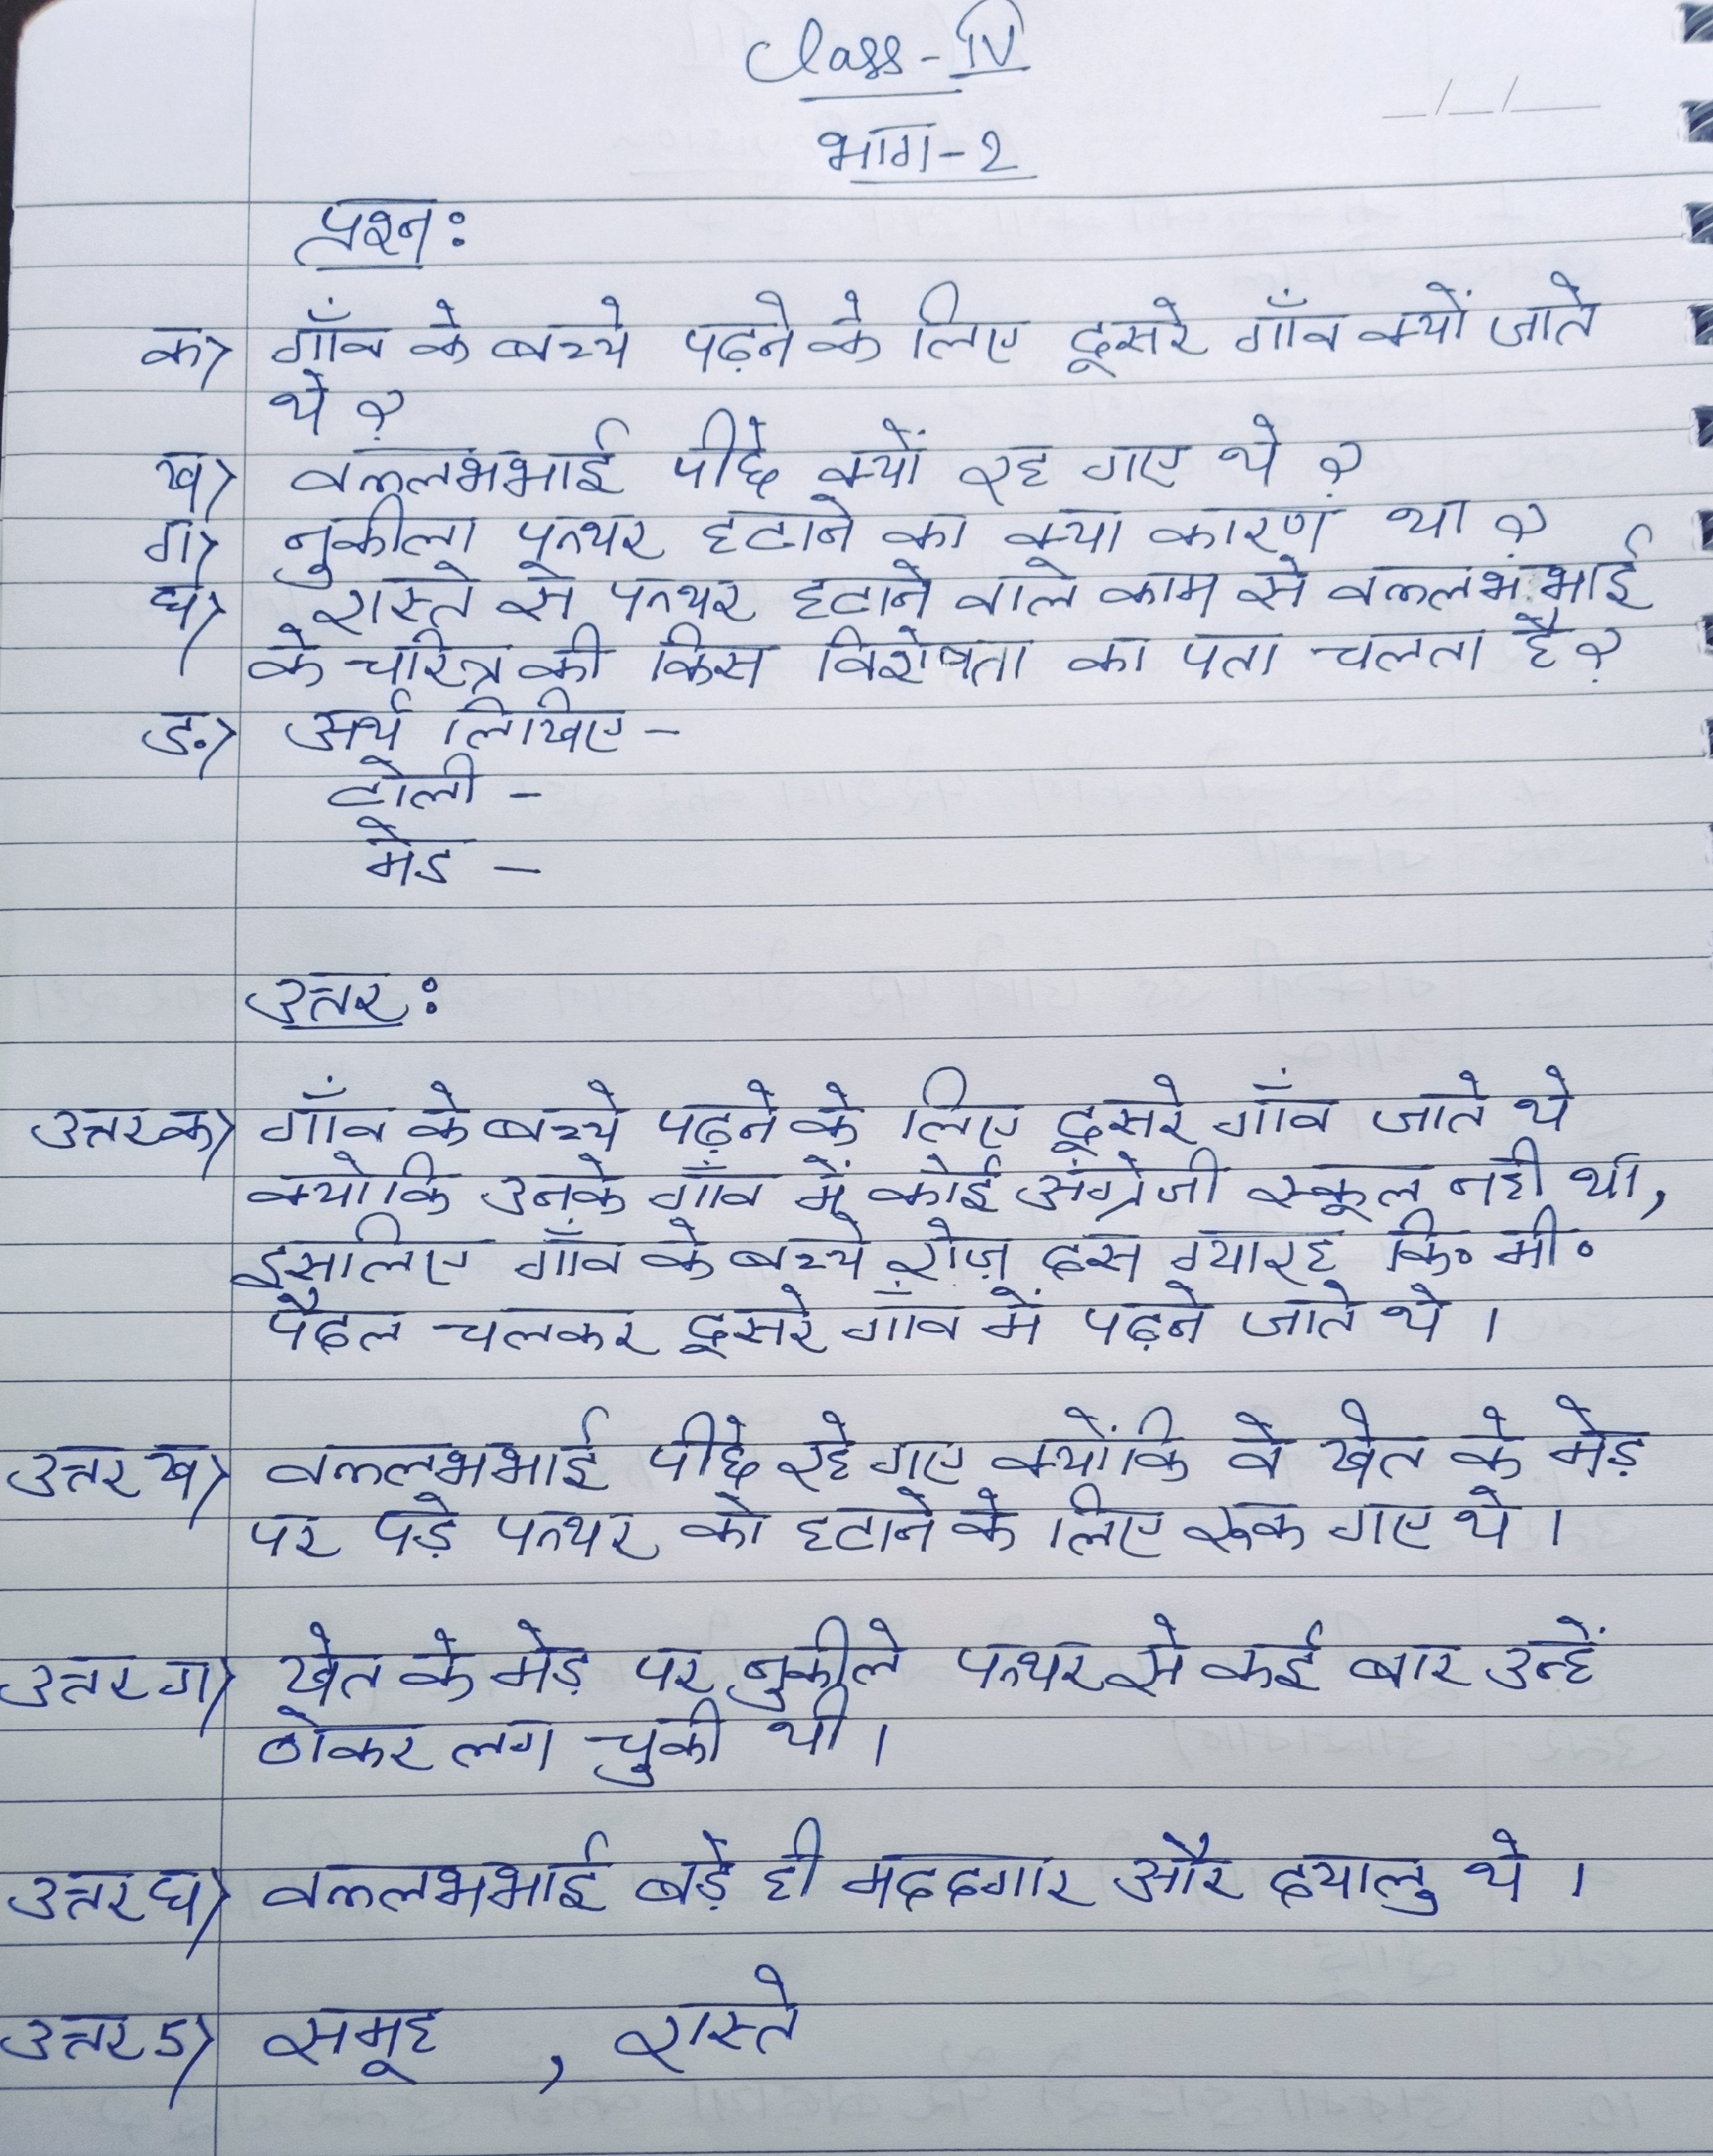 Class - IV
भाग - २
प्रश्न :
क) गाँव के बच्चे पढ़ने के लिए दूसरे गाँव क्यों जाते
थे ?
ख) वल्लभभाई पीछे क्यों रह गए थे ?
ग) नुकीला पत्थर हटाने का क्या कारण था ?
घ) रास्ते से पत्थर हटाने वाले काम से वल्लभभाई
के चरित्र की किस विशेषता का पता चलता है ?
ङ) अर्थ लिखिए -
टोली -
मेड -
उत्तर :
उत्तर क) गाँव के बच्चे पढ़ने के लिए दूसरे गाँव जाते थे
क्योकि उनके गाँव में कोई अंग्रेजी स्कूल नही था,
इसलिए गाँव के बच्चे रोज़ दस ग्यारह कि॰ मी॰
पैदल चलकर दूसरे गाँव में पढ़ने जाते थे ।
उत्तर ख) वल्लभभाई पीछे रहे गए क्योंकि वे खेत के मेड़
पर पड़े पत्थर को हटाने के लिए रूक गए थे ।
उत्तर ग) खेत के मेड़ पर नुकीले पत्थर से कई बार उन्हें
ठोकर लग चुकी थी ।
उत्तर घ) वल्लभभाई बड़े ही मददगार और दयालु थे ।
उत्तर ड) समूह , रास्ते